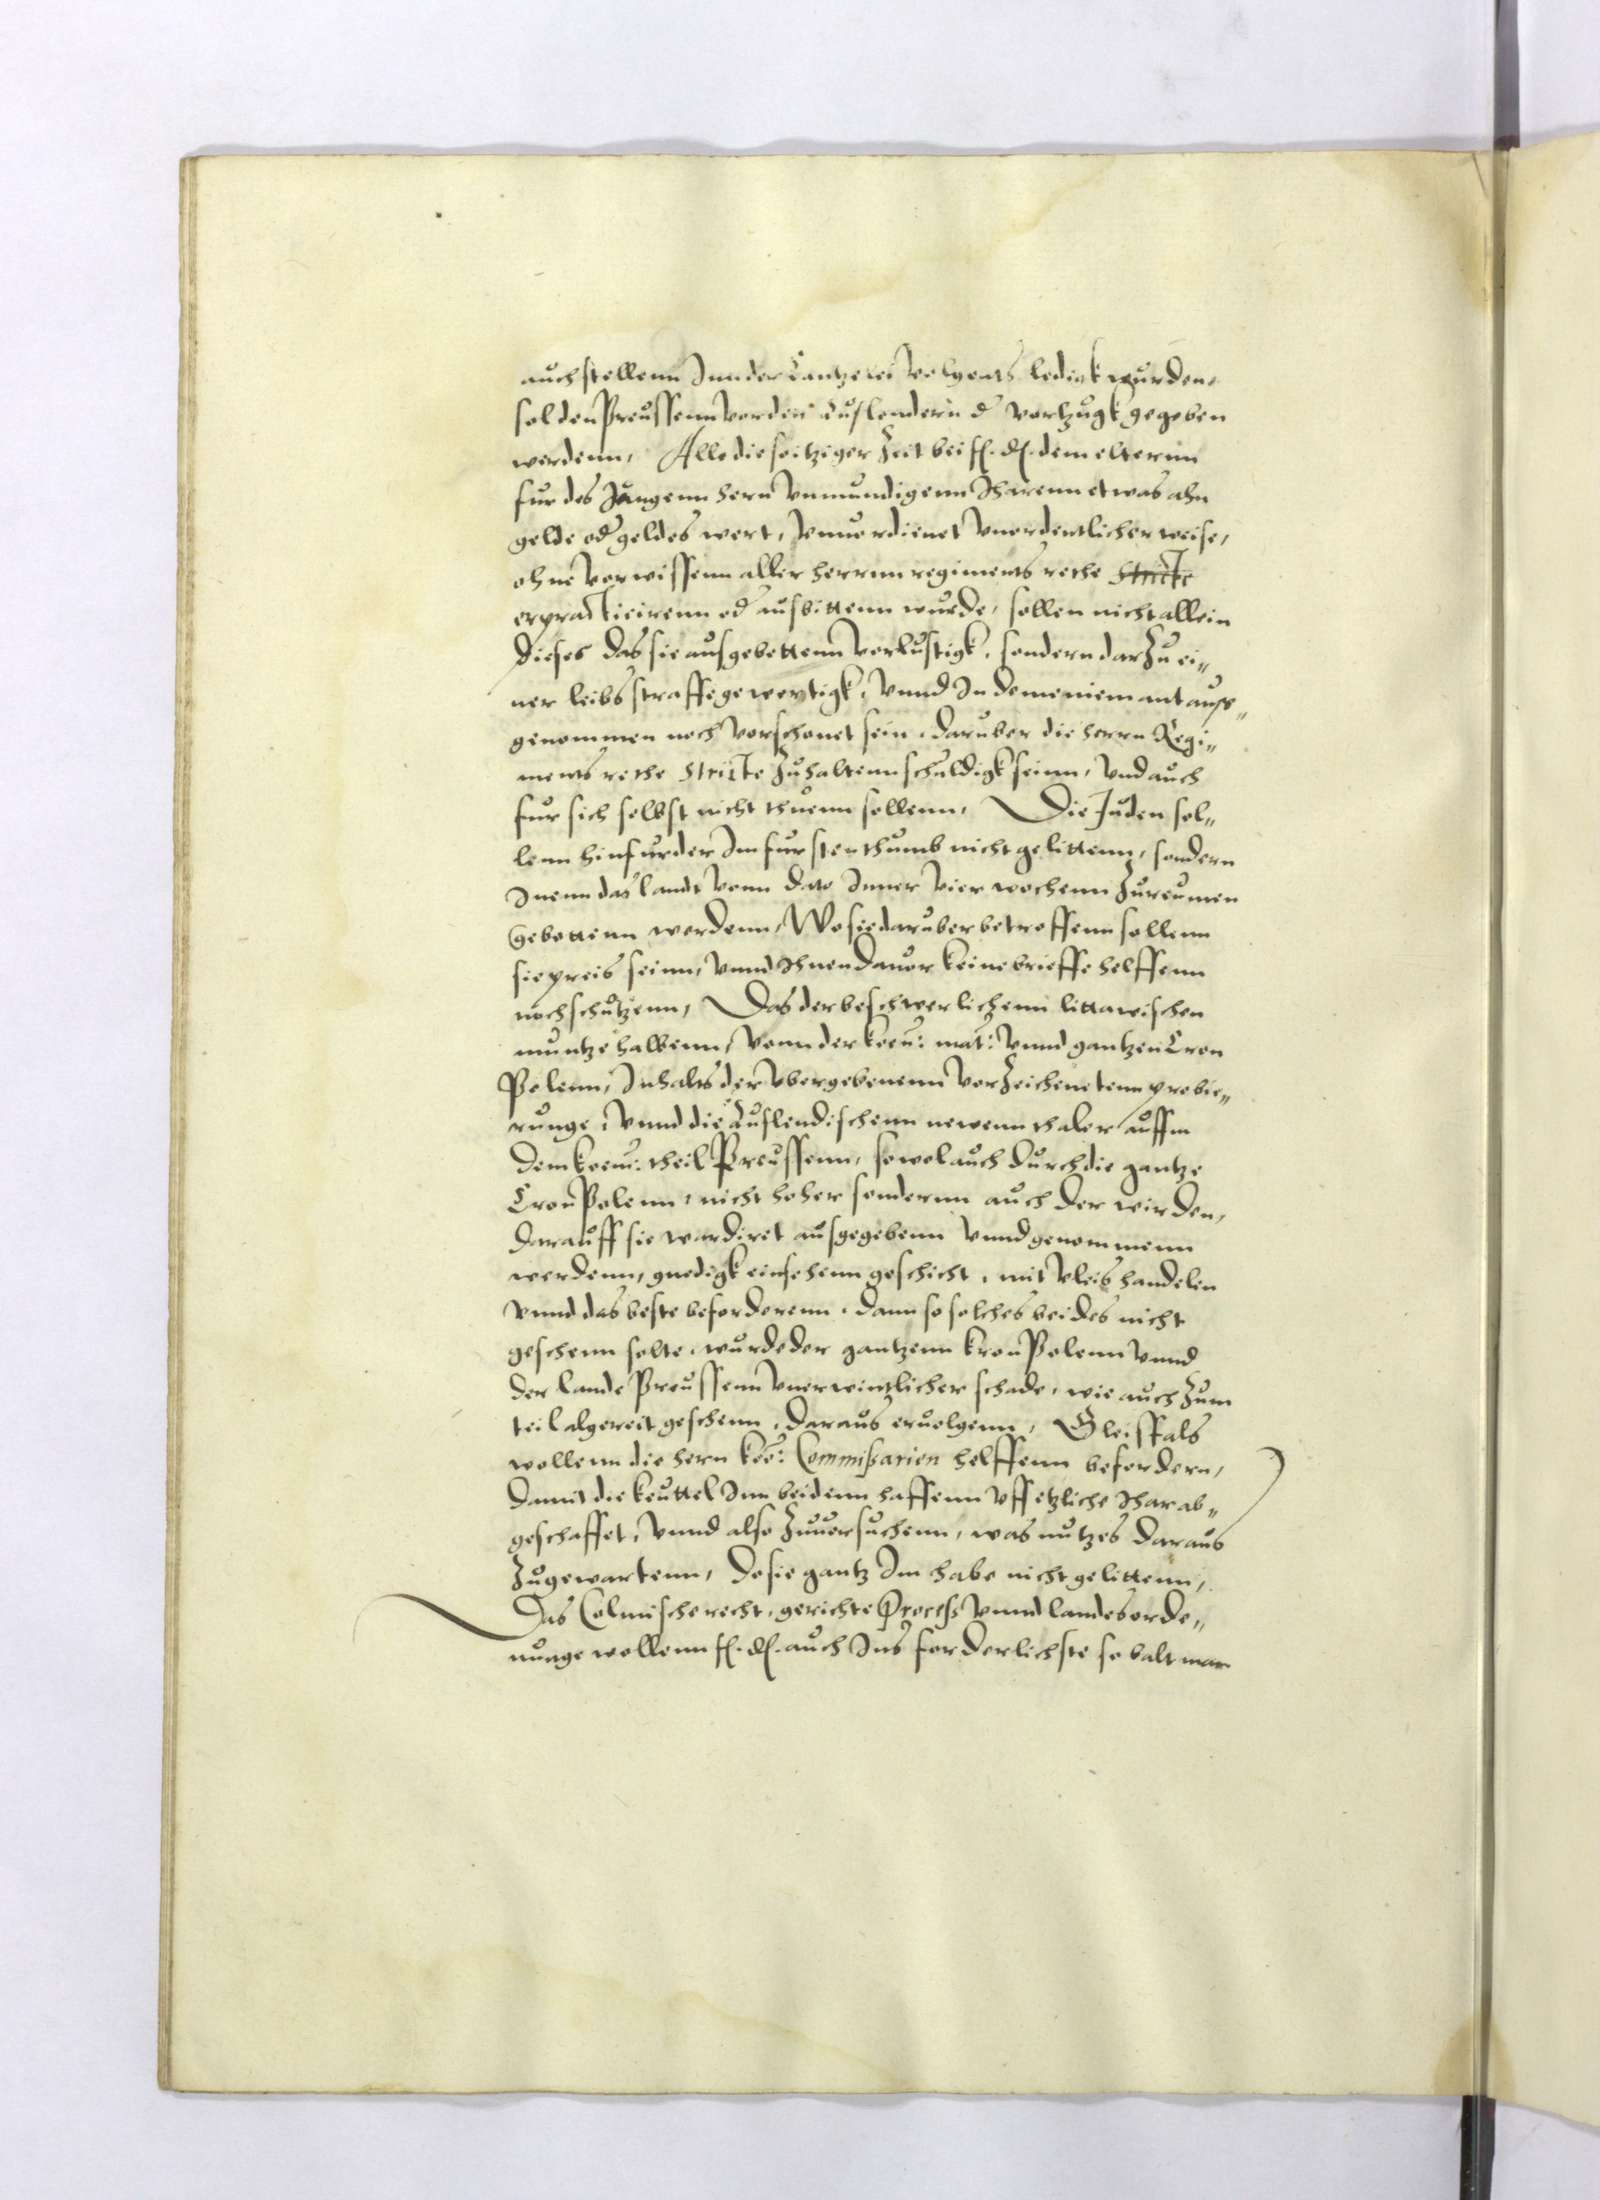 auch stellenn Inn der Cantzelei volgents ledigk wurden,
sol den Preussenn vor den Auslendern d vortzugk gegeben
werdenn, Alle die so itziger Zeit bei f. d. dem elterenn
fur des Jungenn hern vnmundigenn Iharenn etwas ahn
gelde od geldes wert, vnuordienet vnordentlicher weise,
ohne vorwissenn aller herrnn regiments rethe Stricte
erpracticirenn od ausbittenn wurde, sollen nicht allein
dieses das sie ausgebettenn vorlustigk, sondern darzu ei„
ner leibs straffe gewertigk, vnnd In deme niemant aus„
genommen noch vorschonet sein, daruber die herrn Regi„
ments rethe stricte zuhaltenn schuldigk seinn, vnd auch
fur sich selbst nicht thuenn sollenn, Die Juden sol„
lenn hinfurder Im furstenthumb nicht gelittenn, sondern
Inenn das landt vonn dato Inner vier wochenn zureumen
gebottenn werdenn, Wo sie daruber betroffenn sollenn
sie preis seinn, vnnd Ihnen dauor keine brieffe helffenn
noch schutzenn, Das der beschwerlichenn littawischen
muntze halbenn, vonn der koen: mat: vnnd gantzen Cron
Polenn, Inhalts der vbergebenenn vorzeichentenn probie„
runge, vnnd die Auslendischenn newenn thaler auffm
dem koen: theil Preussenn, sowol auch durch die gantze
Cron Polenn, nicht hoher sondernn auch der wirden,
darauff sie wardiret ausgegebenn vnnd genommenn
werdenn, gnedigk einsehenn geschicht, mit vleis handelen
vnnd das beste beforderenn, dann so solches beides nicht
geschenn solte, wurde der gantzenn kron Polenn vnnd
der lande Preussenn vnerwintlicher schade, wie auch zum
teil algereit geschenn, daraus eruolgenn, Gleiffals
wollenn die hern koe: Commißarien helffenn befordern,
damit die keuttel Inn beidenn haffenn vff etzliche Ihar ab„
geschaffet, vnnd also zuuorsuchenn, was nutzes daraus
zugewartenn, do sie gantz Im habe nicht gelittenn,
Das Colmische recht, gerichte Proceß vnnd landesorde„
nunge wollenn f. d. auch Ins forderlichste so balt man